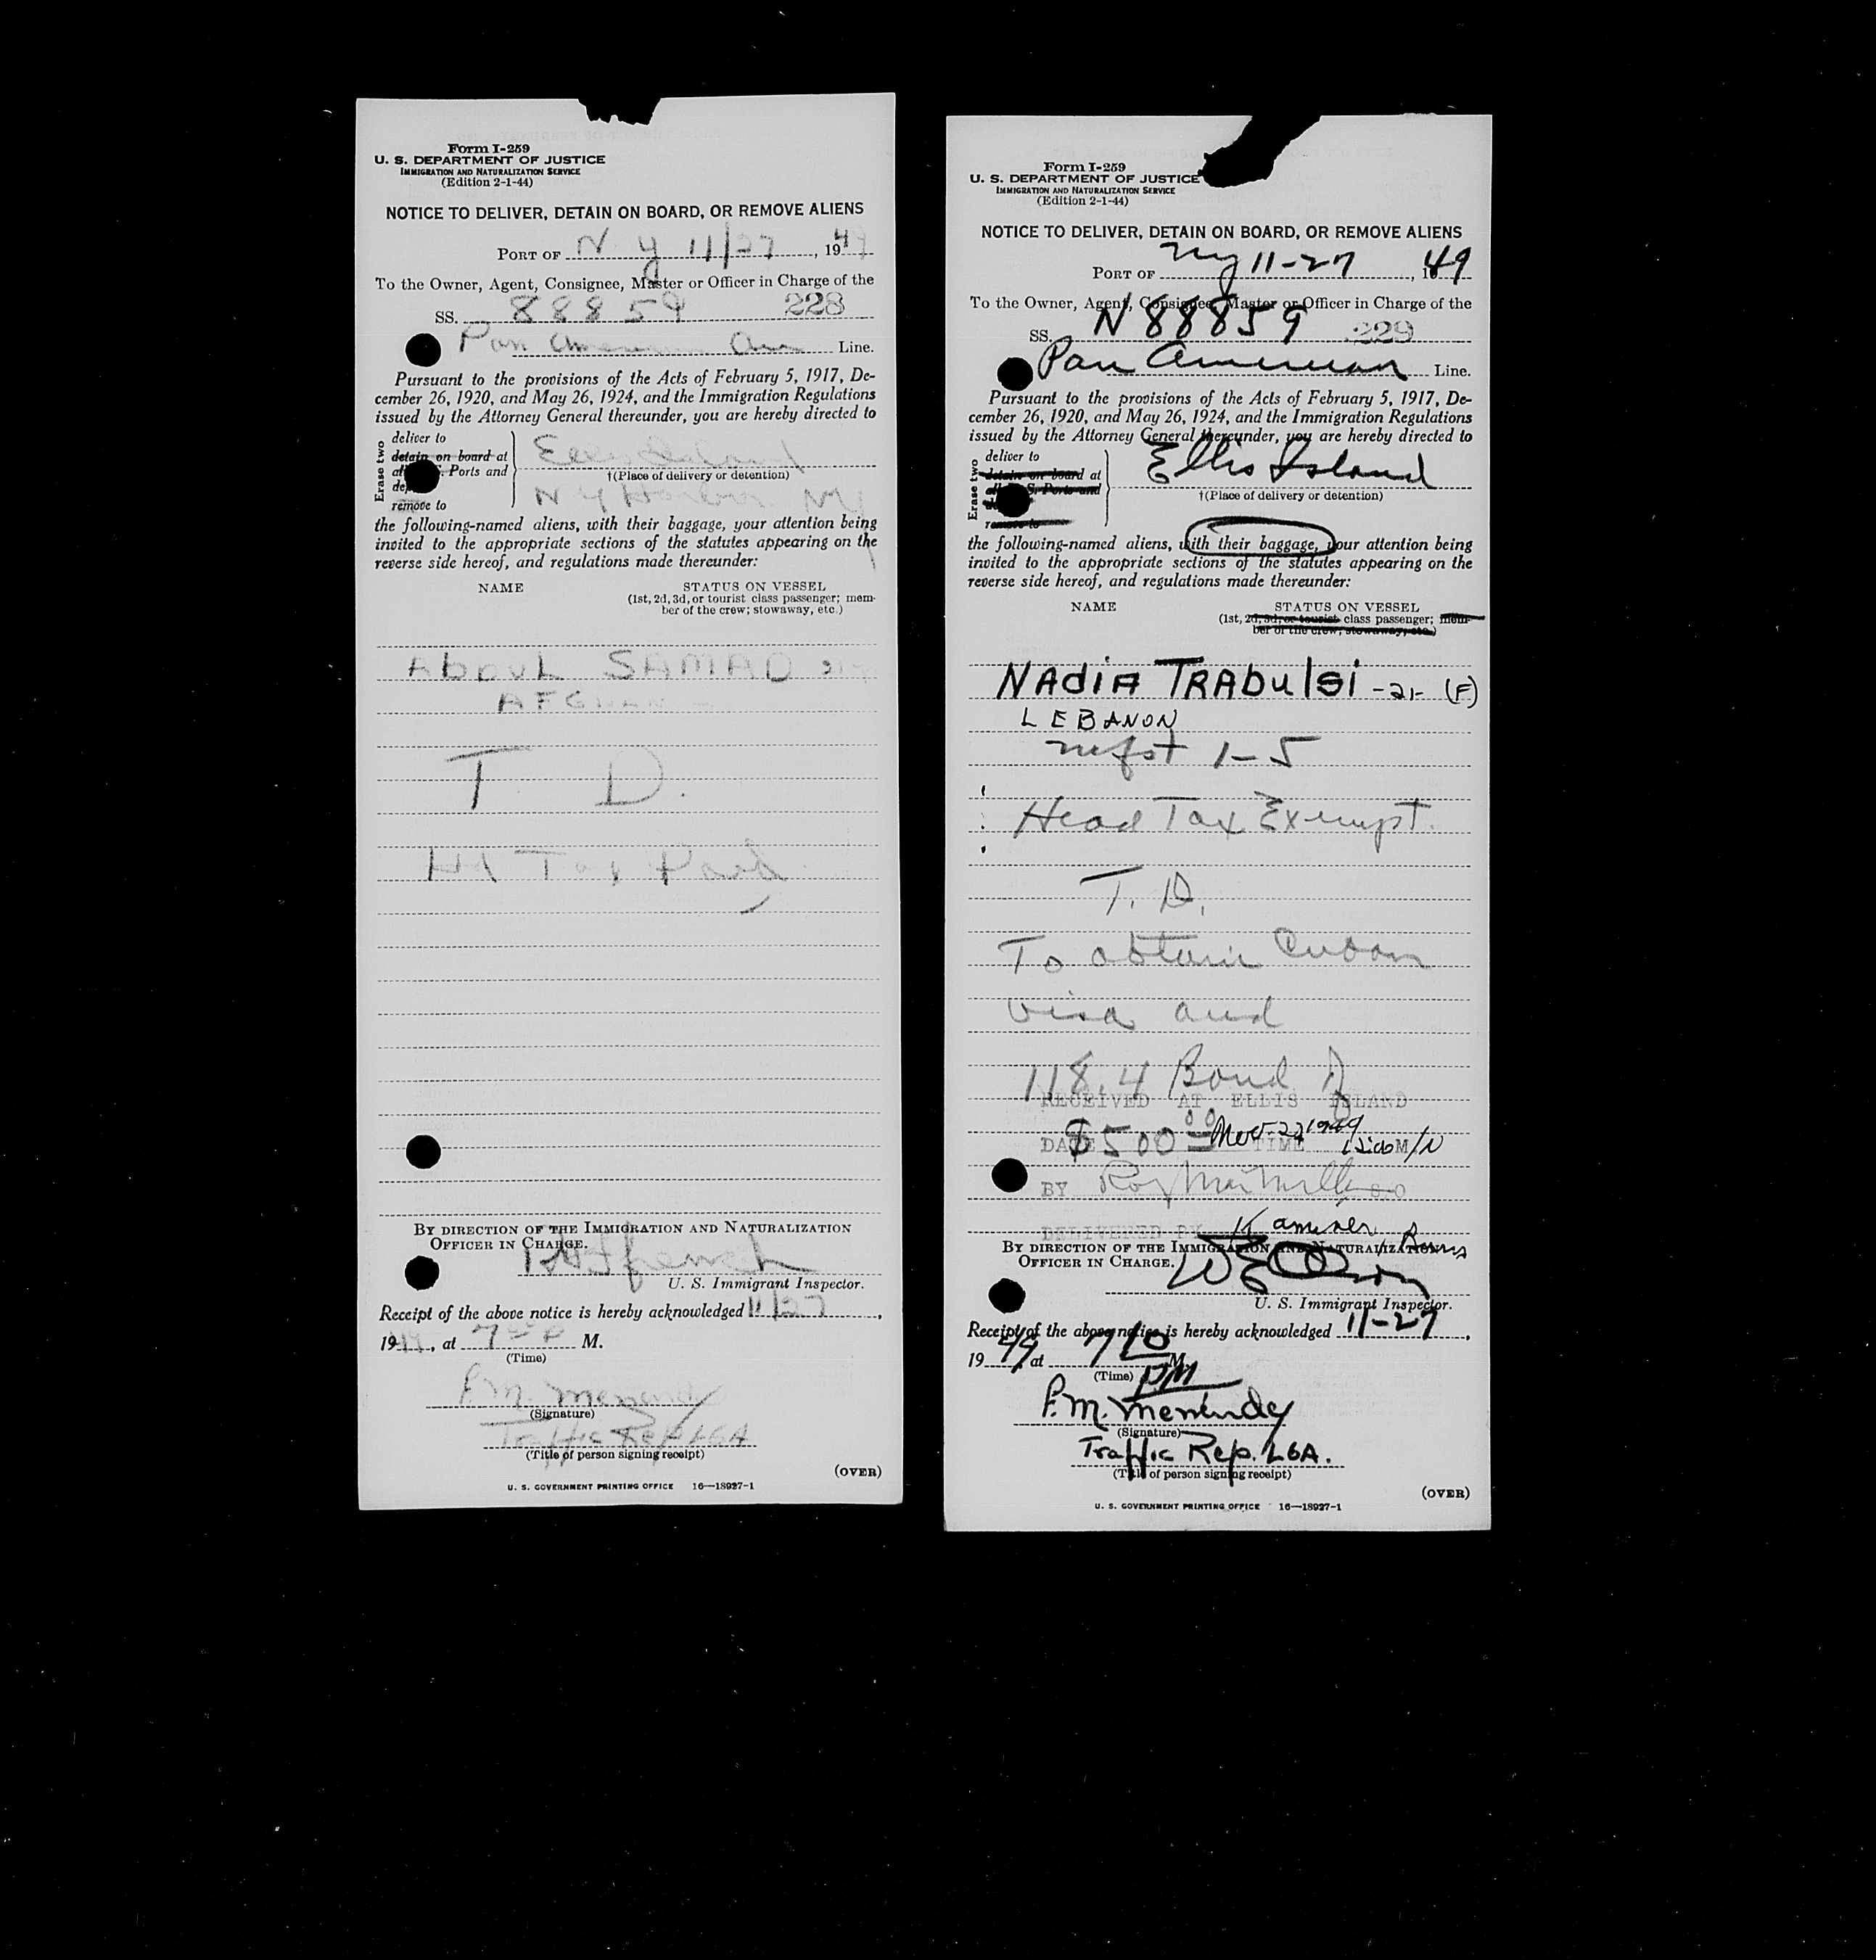 Form I-259
U. S. DEPARTMENT OF JUSTICE
IMMIGRATION AND NATURALIZATION SERVICE
(Edition 2-1-44)
NOTICE TO DELIVER, DETAIN ON BOARD, OR REMOVE ALIENS
PORT OF N Y 11/27, 1949
To the Owner, Agent, Consignee, Master or Officer in Charge of the
SS. 88859 228
Pan American Air Line.
Pursuant to the provisions of the Acts of February 5, 1917, De-
cember 26, 1920, and May 26, 1924, and the Immigration Regulations
issued by the Attorney General thereunder, you are hereby directed to
Erase two
deliver to
detain on board at
Ports and
remove to
Ellis Island
†(Place of delivery or detention)
N Y Harbor NY
the following-named aliens, with their baggage, your attention being
invited to the appropriate sections of the statutes appearing on the
reverse side hereof, and regulations made thereunder:
NAME STATUS ON VESSEL
(1st, 2d, 3d, or tourist class passenger; mem-
ber of the crew; stowaway, etc.)
ABDUL SAMAD
AFGHAN
T D.
Hd Tax Paid
BY DIRECTION OF THE IMMIGRATION AND NATURALIZATION
OFFICER IN CHARGE.
U. S. Immigrant Inspector.
Receipt of the above notice is hereby acknowledged 11/27,
1949, at 7 P M.
(Time)
P. M. Menendez
(Signature)
Traffic Rep LGA
(Title of person signing receipt)
(OVER)
U. S. GOVERNMENT PRINTING OFFICE 16—18927-1
Form I-259
U. S. DEPARTMENT OF JUSTICE
IMMIGRATION AND NATURALIZATION SERVICE
(Edition 2-1-44)
NOTICE TO DELIVER, DETAIN ON BOARD, OR REMOVE ALIENS
PORT OF NY 11-27, 49
To the Owner, Agent, Consignee, Master or Officer in Charge of the
SS. N 88859 229
Pan American Line.
Pursuant to the provisions of the Acts of February 5, 1917, De-
cember 26, 1920, and May 26, 1924, and the Immigration Regulations
issued by the Attorney General thereunder, you are hereby directed to
Erase two
deliver to
detain on board at
S. Ports and
remove to
Ellis Island
†(Place of delivery or detention)
the following-named aliens, with their baggage, your attention being
invited to the appropriate sections of the statutes appearing on the
reverse side hereof, and regulations made thereunder:
NAME STATUS ON VESSEL
(1st, 2d, 3d, or tourist class passenger; mem-
ber of the crew; stowaway, etc.)
NADIA TRABULSI -21- (F)
LEBANON
mfst 1-5
Head Tax Exempt.
T. D.
To obtain Cuban
visa and
118.4 Bond
RECEIVED AT ELLIS ISLAND
$500 00
DATE Nov. 27 1949 TIME 12:00 M/N
BY
DELIVERED BY
BY DIRECTION OF THE IMMIGRATION AND NATURALIZATION
OFFICER IN CHARGE.
U. S. Immigrant Inspector.
Receipt of the above notice is hereby acknowledged 11-27,
1949, at 7 10 PM M.
(Time)
P. M. Menendez
(Signature)
Traffic Rep. LGA.
(Title of person signing receipt)
(OVER)
U. S. GOVERNMENT PRINTING OFFICE 16—18927-1